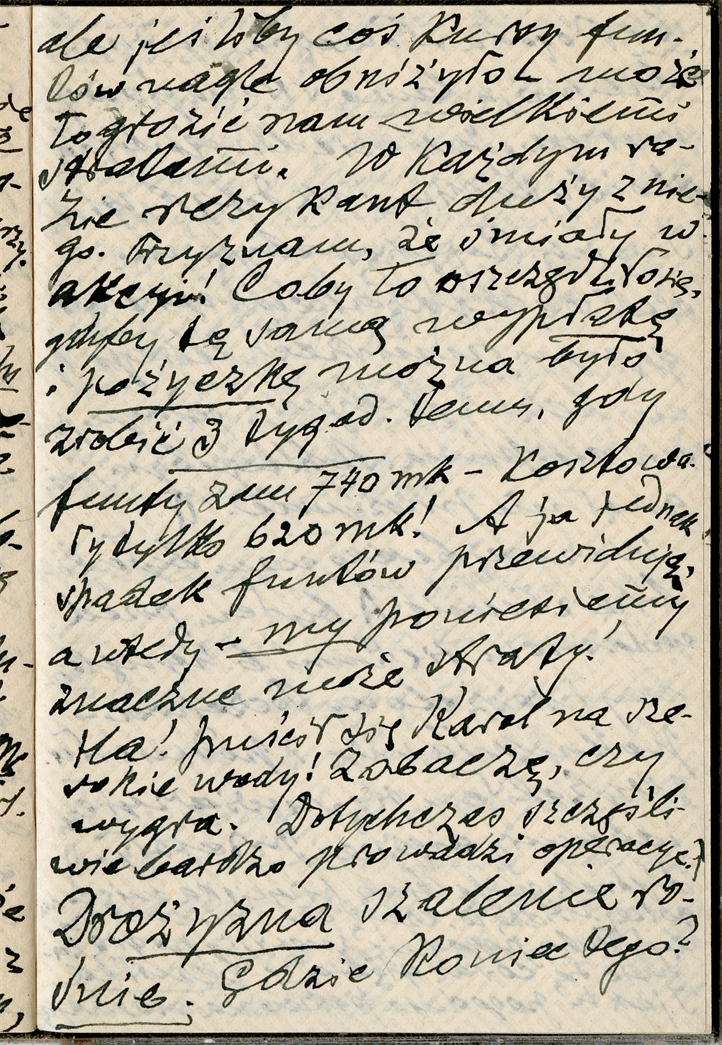 ale jeśliby coś kursy fun-
tów nagle obniżyło – może
to grozić nam wielkiemi
stratami. W każdym ra-
zie ryzykant duży z nie-
go. Przyznam, że śmiały w
akcji! Coby to oszczędziło się,
gdyby tę samą wypłatę
i pożyczkę można było
zrobić 3 tygod. temu, gdy
funty zam 740 mk – kosztowa-
ły tylko 620 mk! A ja jednak
spadek funtów przewiduję,
a wtedy – my poniesiemy
znaczne może straty!
Ha! puścił się Karol na sze-
rokie wody! Zobaczę, czy
wygra. Dotychczas szczęśli-
wie bardzo prowadzi operacje.
Drożyzna szalenie ro-
śnie. Gdzie koniec tego?